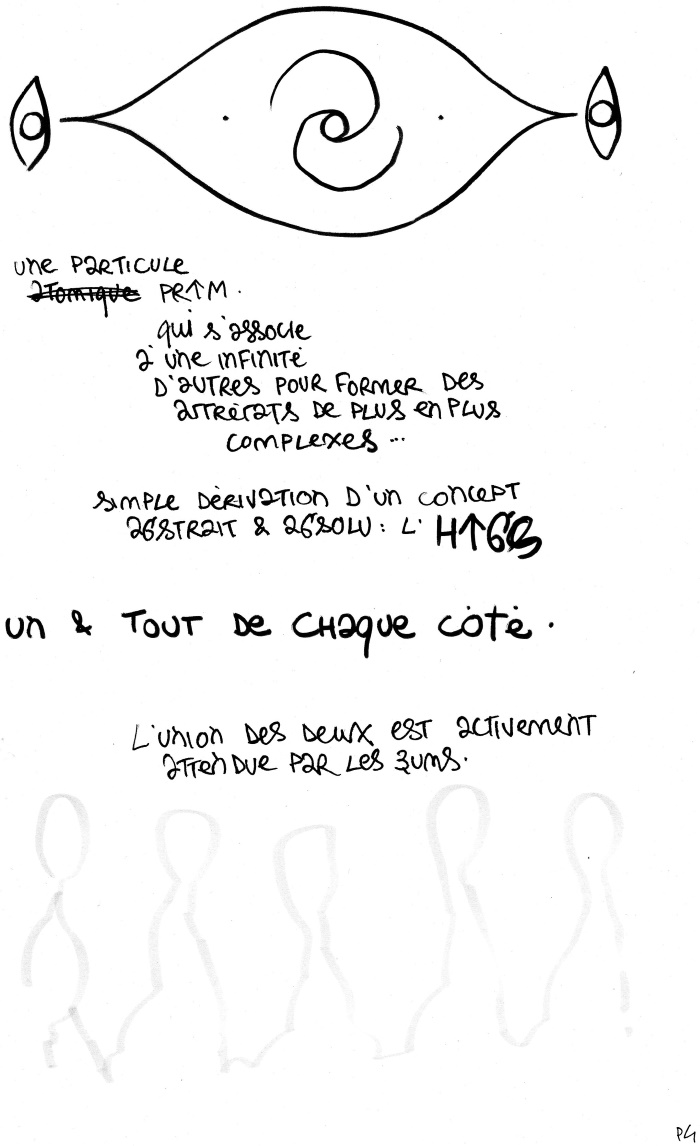 une PARTICULE
atomique PR↑M.
qui s'associe
à une infinité
D'autres pour former des
attrécats de plus en plus
complexes ...
simple dérivation d'un concept
abstrait & absolu : l'
un & TOUT de chaque côté.
L'union des deux est activement
attendue par les 3ums.
PG